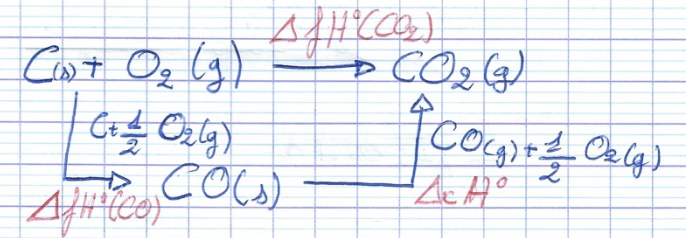 ΔfH°(CO₂)
C(s) + O₂ (g) → CO₂ (g)
C + 1/2 O₂(g)
CO(g) + 1/2 O₂(g)
CO(s)
ΔfH°(CO)
ΔcH°